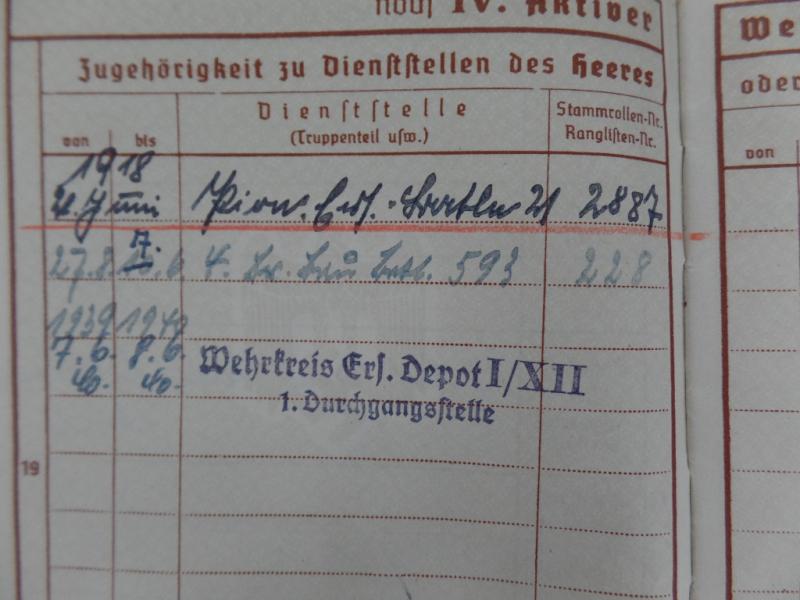 noch IV. Aktiver
Zugehörigkeit zu Dienststellen des Heeres
We
oder
von
von bis
Dienststelle
(Truppenteil usw.)
Stammrollen-Nr.
Ranglisten-Nr.
1918
21. Juni Pion. Ers. Batln 21 2887
7.
27.8. 6. 4. Br. Bau Batl. 593 228
1939 1940
7.6. 8.6.
40. 40.
Wehrkreis Ers. Depot I/XII
1. Durchgangsstelle
19